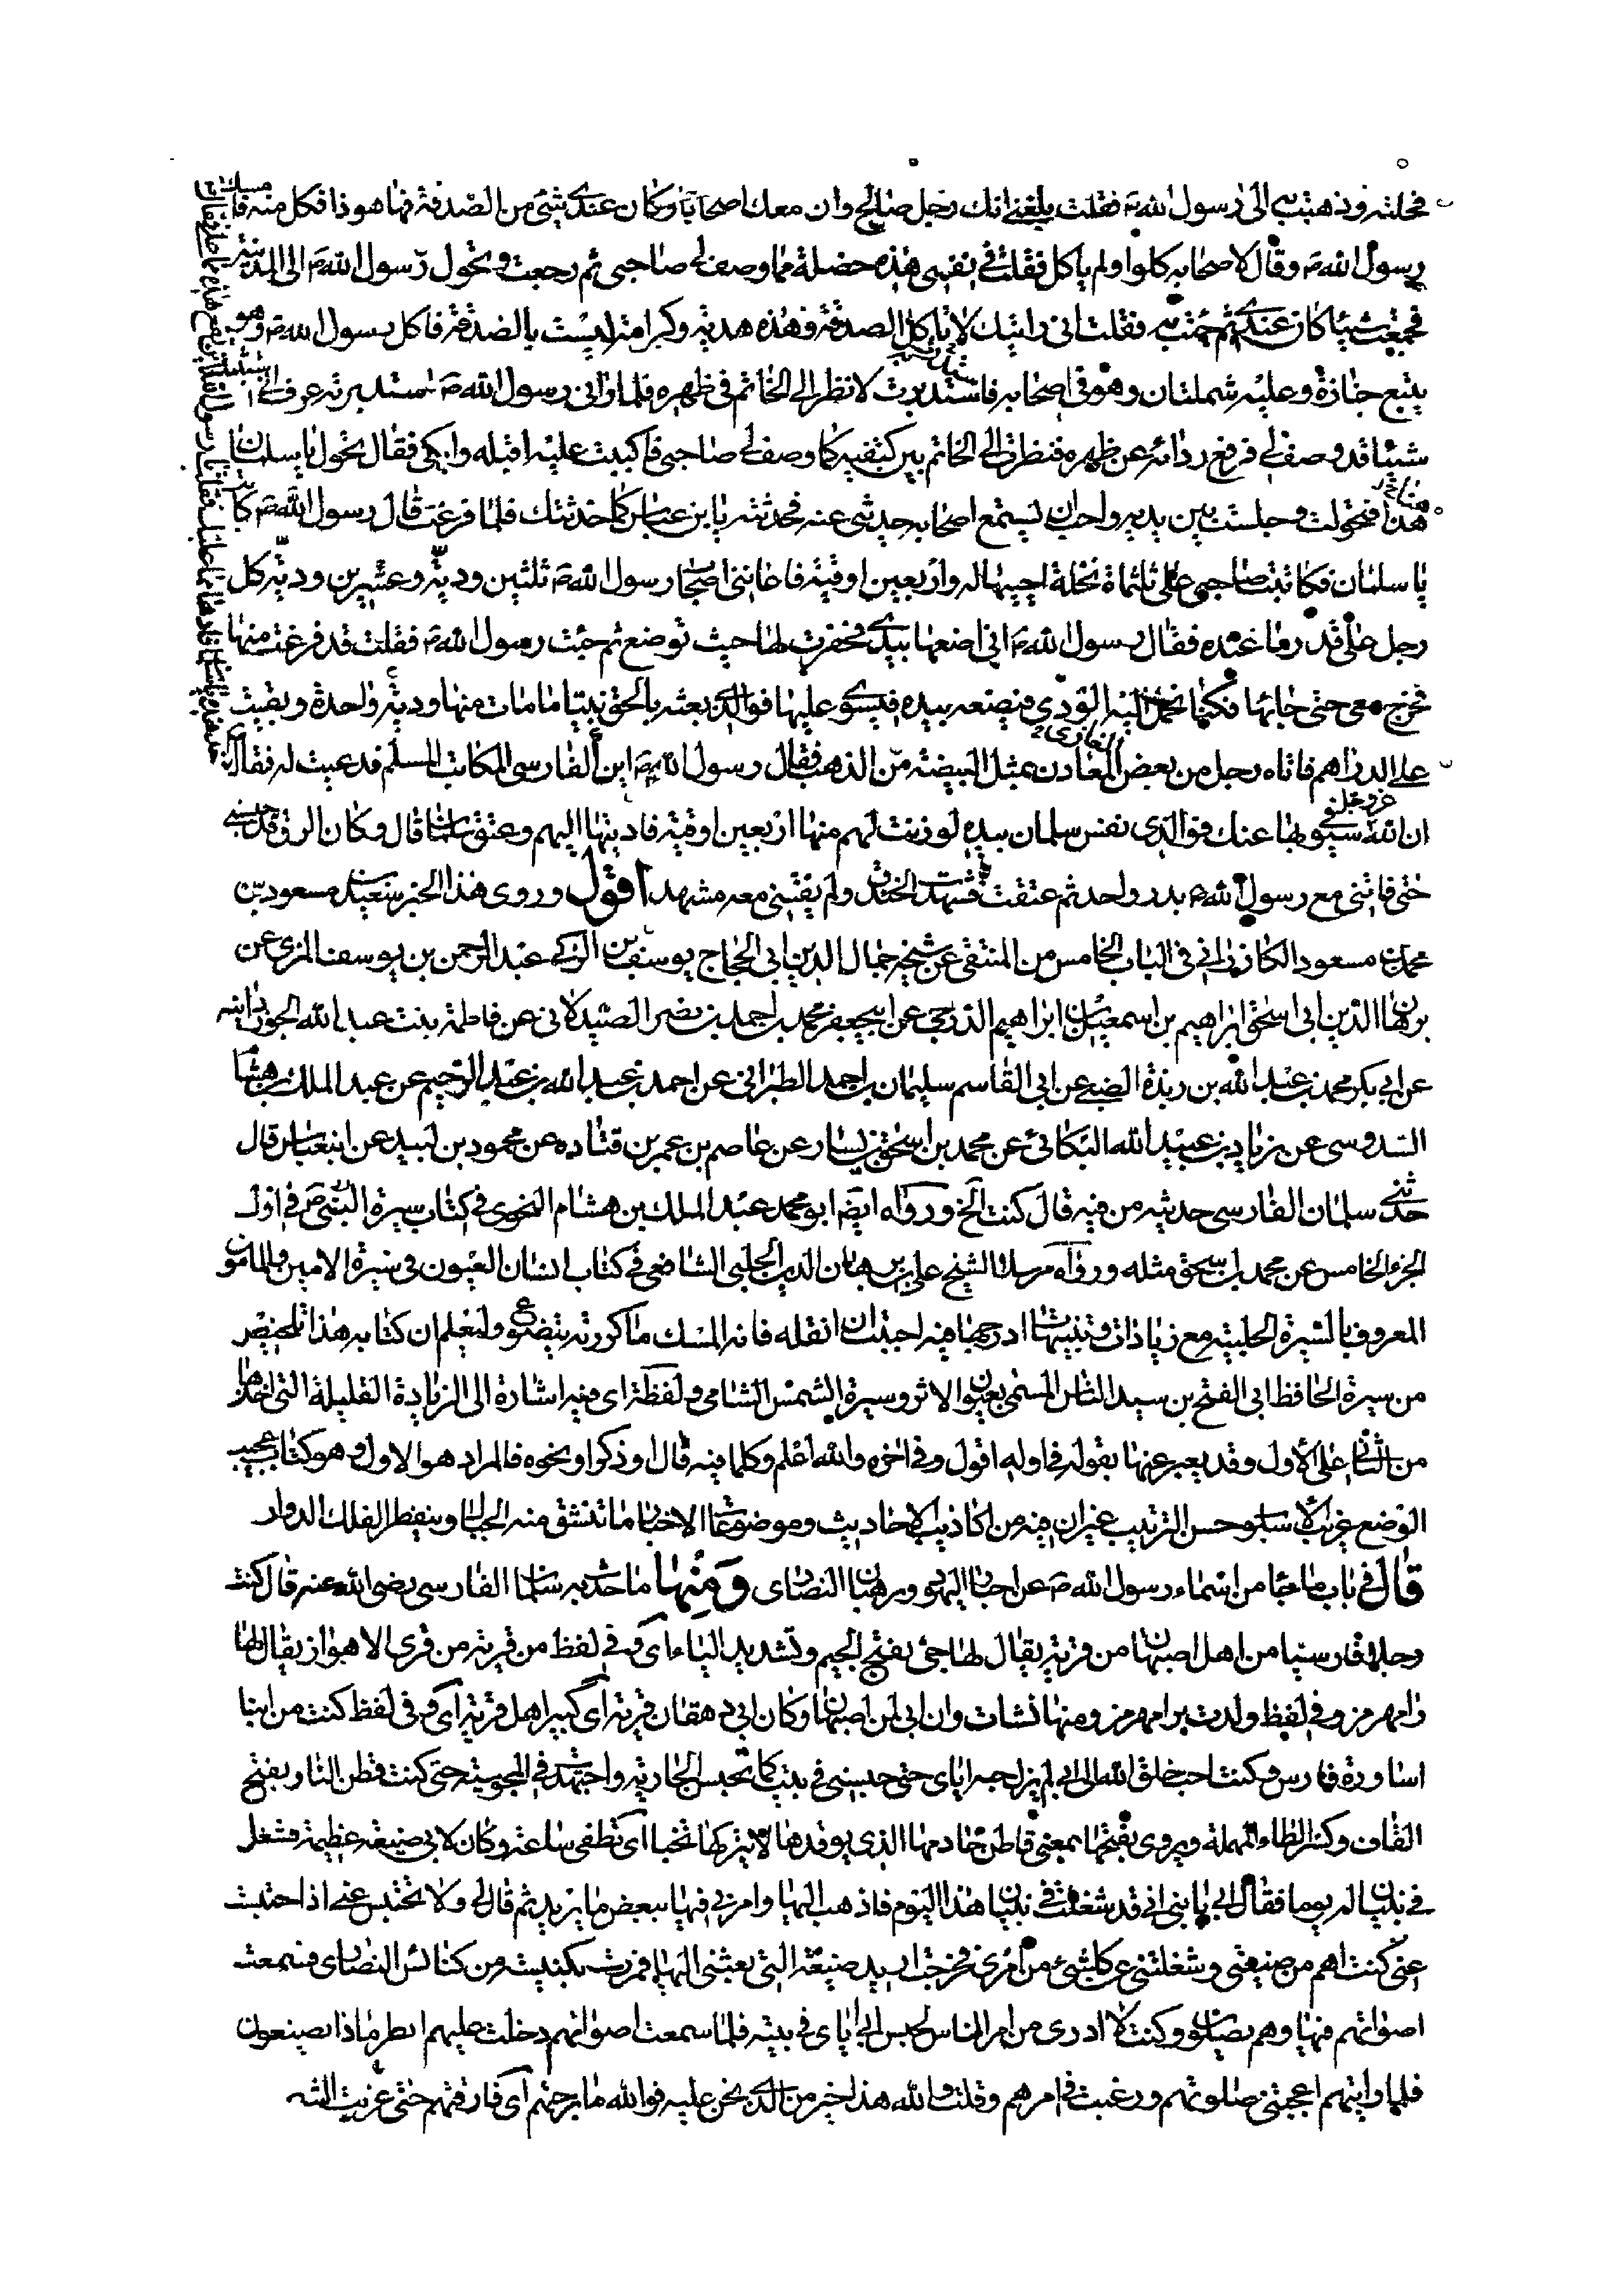 فحملته وذهبت به الى رسول الله ص فقلت بلغني انك رجل صالح وان معك اصحابا وكان عندي شئ من الصدقة فها هوذا فكل منه فامسك
رسول الله ص وقال لاصحابه كلوا ولم ياكل فقلت في نفسي هذه خصلة مما وصف لي صاحبي ثم رجعت وتحول رسول الله ص الى المدينة
فجمعت شيئا كان عندي ثم جئت به فقلت اني رايتك لا تاكل الصدقة وهذه هدية وكرامة ليست بالصدقة فاكل رسول الله ص وهو
يتبع جنازة وعليه شملتان وهو في اصحابه فاستدبرت لانظر الى الخاتم في ظهره فلما راني رسول الله ص استدبرته عرف اني استثبت
شيئا قد وصف لي فرفع ردائه عن ظهره فنظرت الى الخاتم بين كتفيه كما وصف لي صاحبي فاكببت عليه اقبله وابكي فقال تحول يا سلمان
هنا فتحولت وجلست بين يديه واحب ان يستمع اصحابه حديثي عنه فحدثته يا بن عباس كما حدثتك فلما فرغت قال رسول الله ص كاتب
يا سلمان فكاتبت صاحبي على ثلثماة نخلة احييها له واربعين اوقية فاعانني اصحاب رسول الله ص ثلثين ودية وعشرين ودية كل
رجل على قدر ما عنده فقال رسول الله ص اني اضعها بيدي فحفرت لها حيث توضع ثم جئت رسول الله ص فقلت قد فرغت منها
فخرج معي حتى جائها فكنا نحمل اليه الودي فيضعه بيده فيسوي عليها فوالذي بعثه بالحق نبيا ما مات منها ودية واحدة وبقيت
على الدراهم فاتاه رجل من بعض المعادن بمثل البيضة من الذهب فقال رسول الله ص اين الفارسي المكاتب المسلم فدعيت له فقال
ان الله عز وجل سيوفي بها عنك فوالذي نفس سلمان بيده لوزنت لهم منها اربعين اوقية فاديتها اليهم وعتق سلمان قال وكان الرق قد حبسني
حتى فاتني مع رسول الله ص بدر واحد ثم عتقت فشهدت الخندق ولم يفتني معه مشهد اقول وروى هذا الخبر سعيد بن مسعود بن
محمد بن مسعود الكازراني في الباب الخامس من المنتقى عن شيخه جمال الدين ابي الحجاج يوسف بن الزكي عبد الرحمن بن يوسف المزي عن
برهان الدين ابي اسحق ابراهيم بن اسمعيل بن ابراهيم الدرجي عن ابي جعفر محمد بن احمد بن نصر الصيدلاني عن فاطمة بنت عبد الله الجوزدانيه
عن ابي بكر محمد بن عبد الله بن ريذة الضبي عن ابي القاسم سليمان بن احمد الطبراني عن احمد بن عبد الله بن عبد الرحيم عن عبد الملك بن هشام
السدوسي عن زياد بن عبيد الله البكائي عن محمد بن اسحق بن يسار عن عاصم بن عمر بن قتاده عن محمود بن لبيد عن ابن عباس قال
حدثني سلمان الفارسي حديثه من فيه قال كنت الخ ورواه ايضا ابو محمد عبد الملك بن هشام النحوي في كتاب سيرة النبي ص في اول
الجزء الخامس عن محمد بن اسحق مثله ورواه مرسلا الشيخ علي بن برهان الدين الحلبي الشافعي في كتاب انسان العيون في سيرة الامين والمامون
المعروف بالسيرة الحلبية مع زيادات وتنبيهات ادرجها فيه احببت ان انقله فانه المسك ما كررته يتضوع وليعلم ان كتابه هذا تلخيص
من سيرة الحافظ ابي الفتح بن سيد الناس المسمى بعيون الاثر وسيرة الشمس الشامي ولفظة اي فيه اشارة الى الزيادة القليلة التي اخذها
من الثاني على الاول وقد يعبر عنها بقوله في اوله اقول وفي اخره والله اعلم وكلما فيه قال او ذكر او نحوه فالمراد هو الاول وهو كتاب عجيب
الوضع غريب الاسلوب حسن الترتيب غير ان فيه من اكاذيب الاحاديث وموضوعات الاخبار ما تنشق منه الجبال وينفطر الفلك الدوار
قال في باب ما جاء من اسماء رسول الله ص عن احبار اليهود ورهبان النصارى ومنها ما حدث به سلمان الفارسي رضي الله عنه قال كنت
رجلا فارسيا من اهل اصبهان من قرية يقال لها جي بفتح الجيم وتشديد الياء اي وفي لفظ من قرية من قرى الاهواز يقال لها
رامهرمز وفي لفظ ولدت برامهرمز ومنها نشات وان ابي لمن اصبهان وكان ابي دهقان قرية اي كبير اهل قرية اي وفي لفظ كنت من ابناء
اساورة فارس وكنت احب خلق الله الى ابي لم يزل حبه اياي حتى حبسني في بيت كما تحبس الجارية واجتهدت في المجوسية حتى كنت قطن النار بفتح
القاف وكسر الطاء المهملة ويروى بفتحها بمعنى قاطن خادمها الذي يوقدها لا يتركها تخبا اي تطفى ساعة وكان لابي ضيعة عظيمة فشغل
في بنيان له يوما فقال لي ابي يا بني اني قد شغلت في بنيان هذا اليوم فاذهب اليها وامرني فيها ببعض ما يريد ثم قال لي ولا تحتبس عني اذا احتبست
عني كنت اهم من ضيعتي وشغلتني عن كل شئ من امري فخرجت اريد ضيعته التي بعثني اليها فمررت بكنيسة من كنائس النصارى فسمعت
اصواتهم فيها وهم يصلون وكنت لا ادري من امر الناس لحبس ابي اياي في بيته فلما سمعت اصواتهم دخلت عليهم انظر ماذا يصنعون
فلما رايتهم اعجبتني صلوتهم ورغبت في امرهم وقلت والله هذا خير من الذي نحن عليه فوالله ما برحتهم اي فارقتهم حتى غربت الشمس